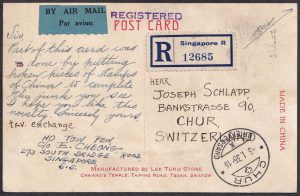 BY AIR MAIL
Par avion
REGISTERED
POST CARD
R
Singapore R
12685
Sir
Part of this card was
done by putting
broken pieces of stamps
of China to complete
the junk you see.
I hope you like this
novelty. Sincerely yours
exchange
HO TOW PEW
C/o E. CHEONG
SOUTH BRIDGE ROAD
SINGAPORE
S.S.
HERR
JOSEPH SCHLAPP
BANKSTRASSE 90,
CHUR,
SWITZERLAND
CHUR
MADE IN CHINA
MANUFACTURED BY LEE TUNG STORE
TEMPLE, TAIPING ROAD, SWATOW